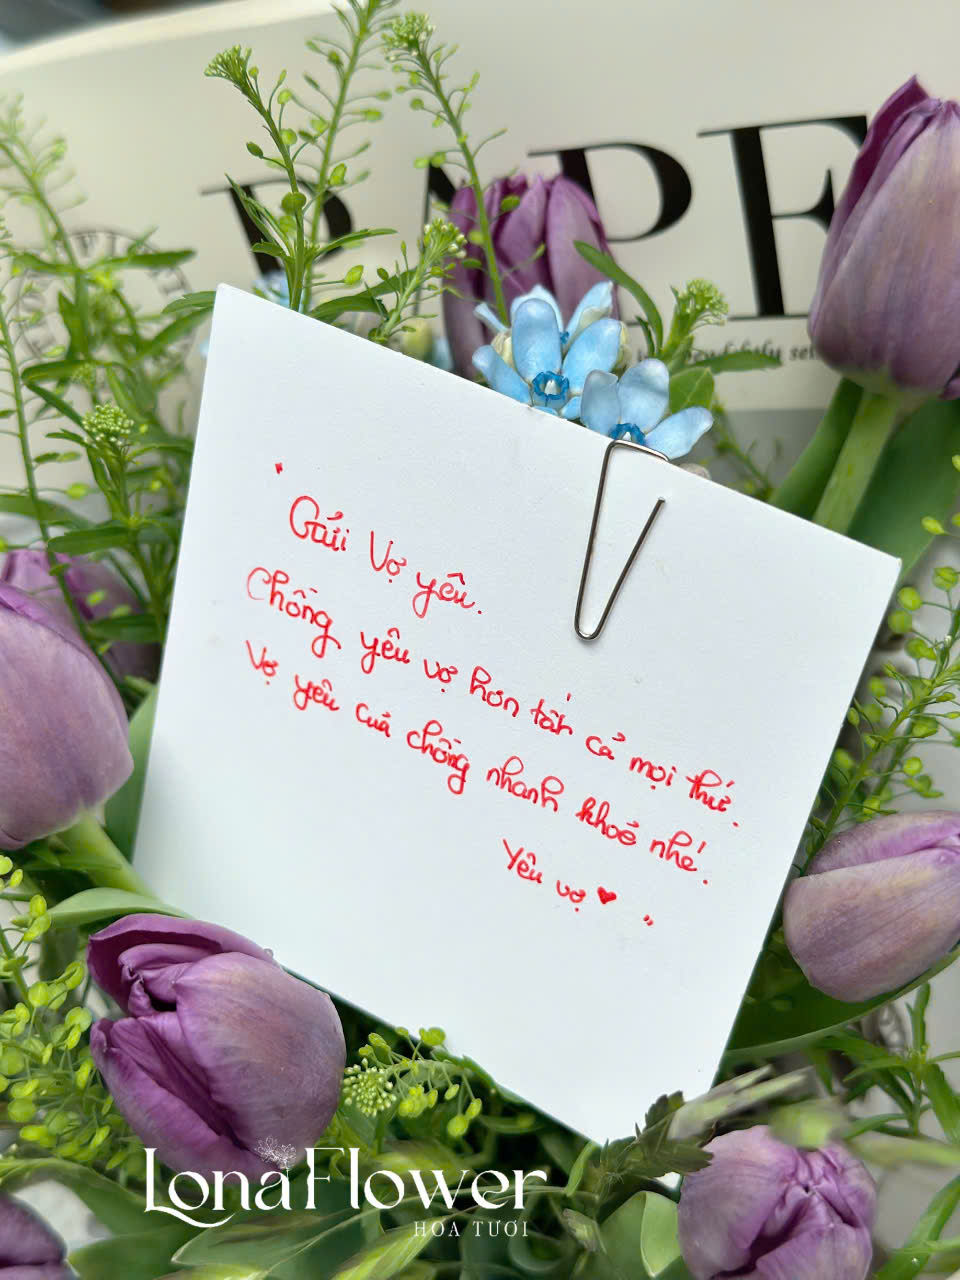 PAPE
"
Gửi Vợ yêu.
Chồng yêu vợ hơn tất cả mọi thứ.
Vợ yêu của chồng nhanh khoẻ nhé.
Yêu vợ ♥ "
LonaFlower
HOA TƯƠI